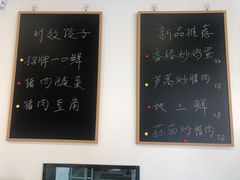 时放饺子
招牌一口鲜
猪肉酸菜
猪肉豆角
新品推荐
香椿炒鸡蛋
芦蒿炒腊肉 38
地三鲜 28
蒜苗炒腊肉 38